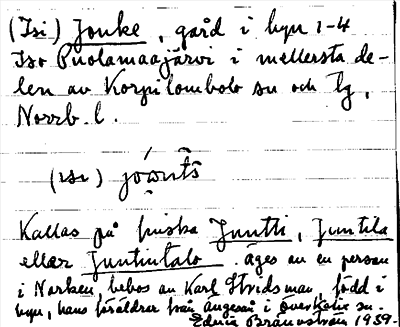 (Isi) Jouke, gård i byn 1-4
Iso Puolamaajärvi i mellersta de-
len av Korpilombolo sn och tg,
Norrb. l.
Kallas på finska Juntti, Juntila
eller Juntintalo. Äges av en person
i Narken, bebos av Karl Stridsman, född i
byn, hans föräldrar från Ängesån i Överkalix sn.
Edvin Brännström 1959.